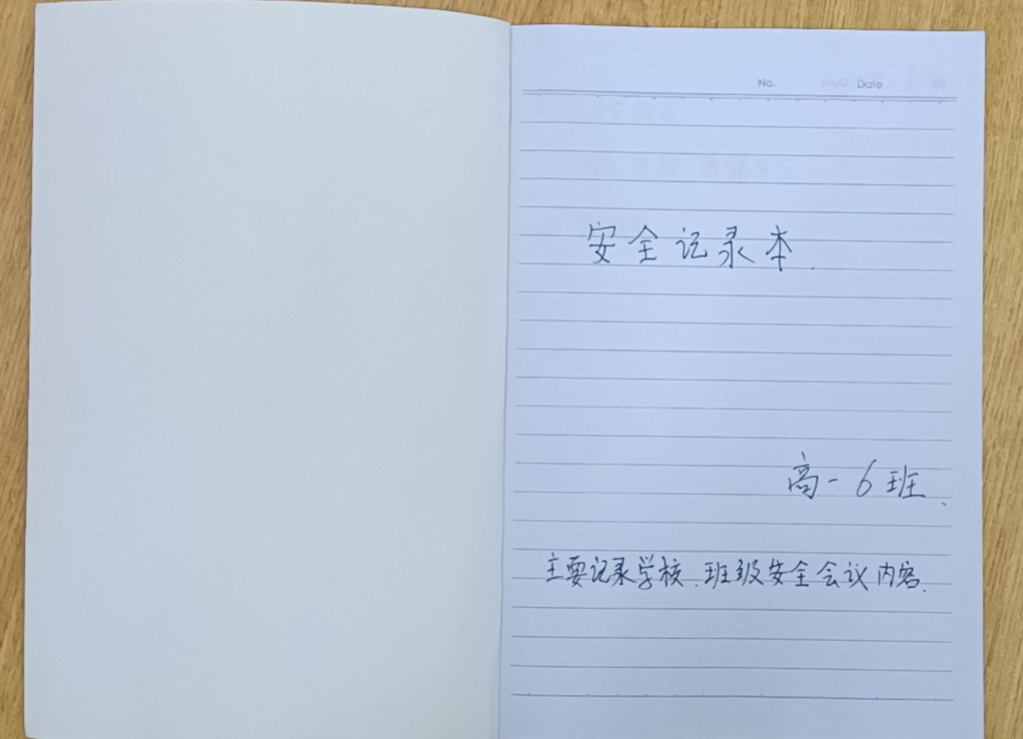 No. Date
安全记录本.
高一6班、
主要记录学校、班级安全会议内容、